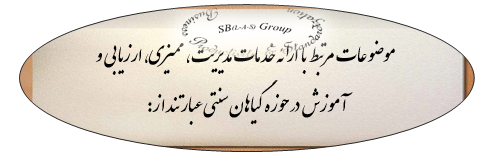 SB(L-A-S) Group
Business
موضوعات مرتبط با ارائه خدمات مدیریت، ممیزی، ارزیابی و
آموزش در حوزه گیاهان سنتی عبارتند از: